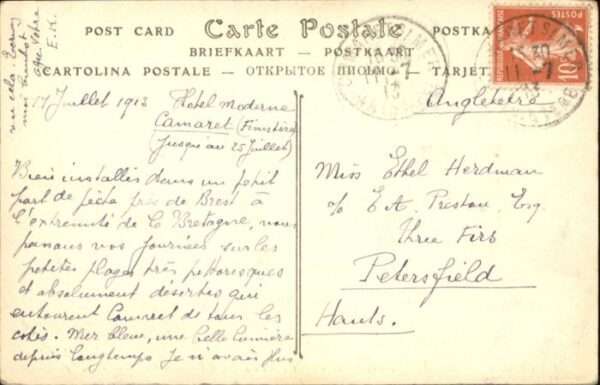 POST CARD Carte Postale POSTKA
BRIEFKAART — POSTKAART
CARTOLINA POSTALE — ОТКРЫТОЕ ПИСЬМО — TARJET
POSTES
10
11-7
E.K.
votre
Juillet 1913 Hotel Moderne
Camaret (Finistère
jusqu'au 25 Juillet)
Bien installés dans un petit
port de pêche près de Brest à
l'extremité de la Bretagne, nous
passons nos journées sur les
petites plages très pittoresques
et absolument désertes qui
entourent Camaret de tous les
côtés. Mer bleue, une belle lumière
depuis longtemps je n'avais plus
Angleterre
Miss Ethel Herdman
c/o E. A. Preston Esq
Three Firs
Petersfield
Hants.